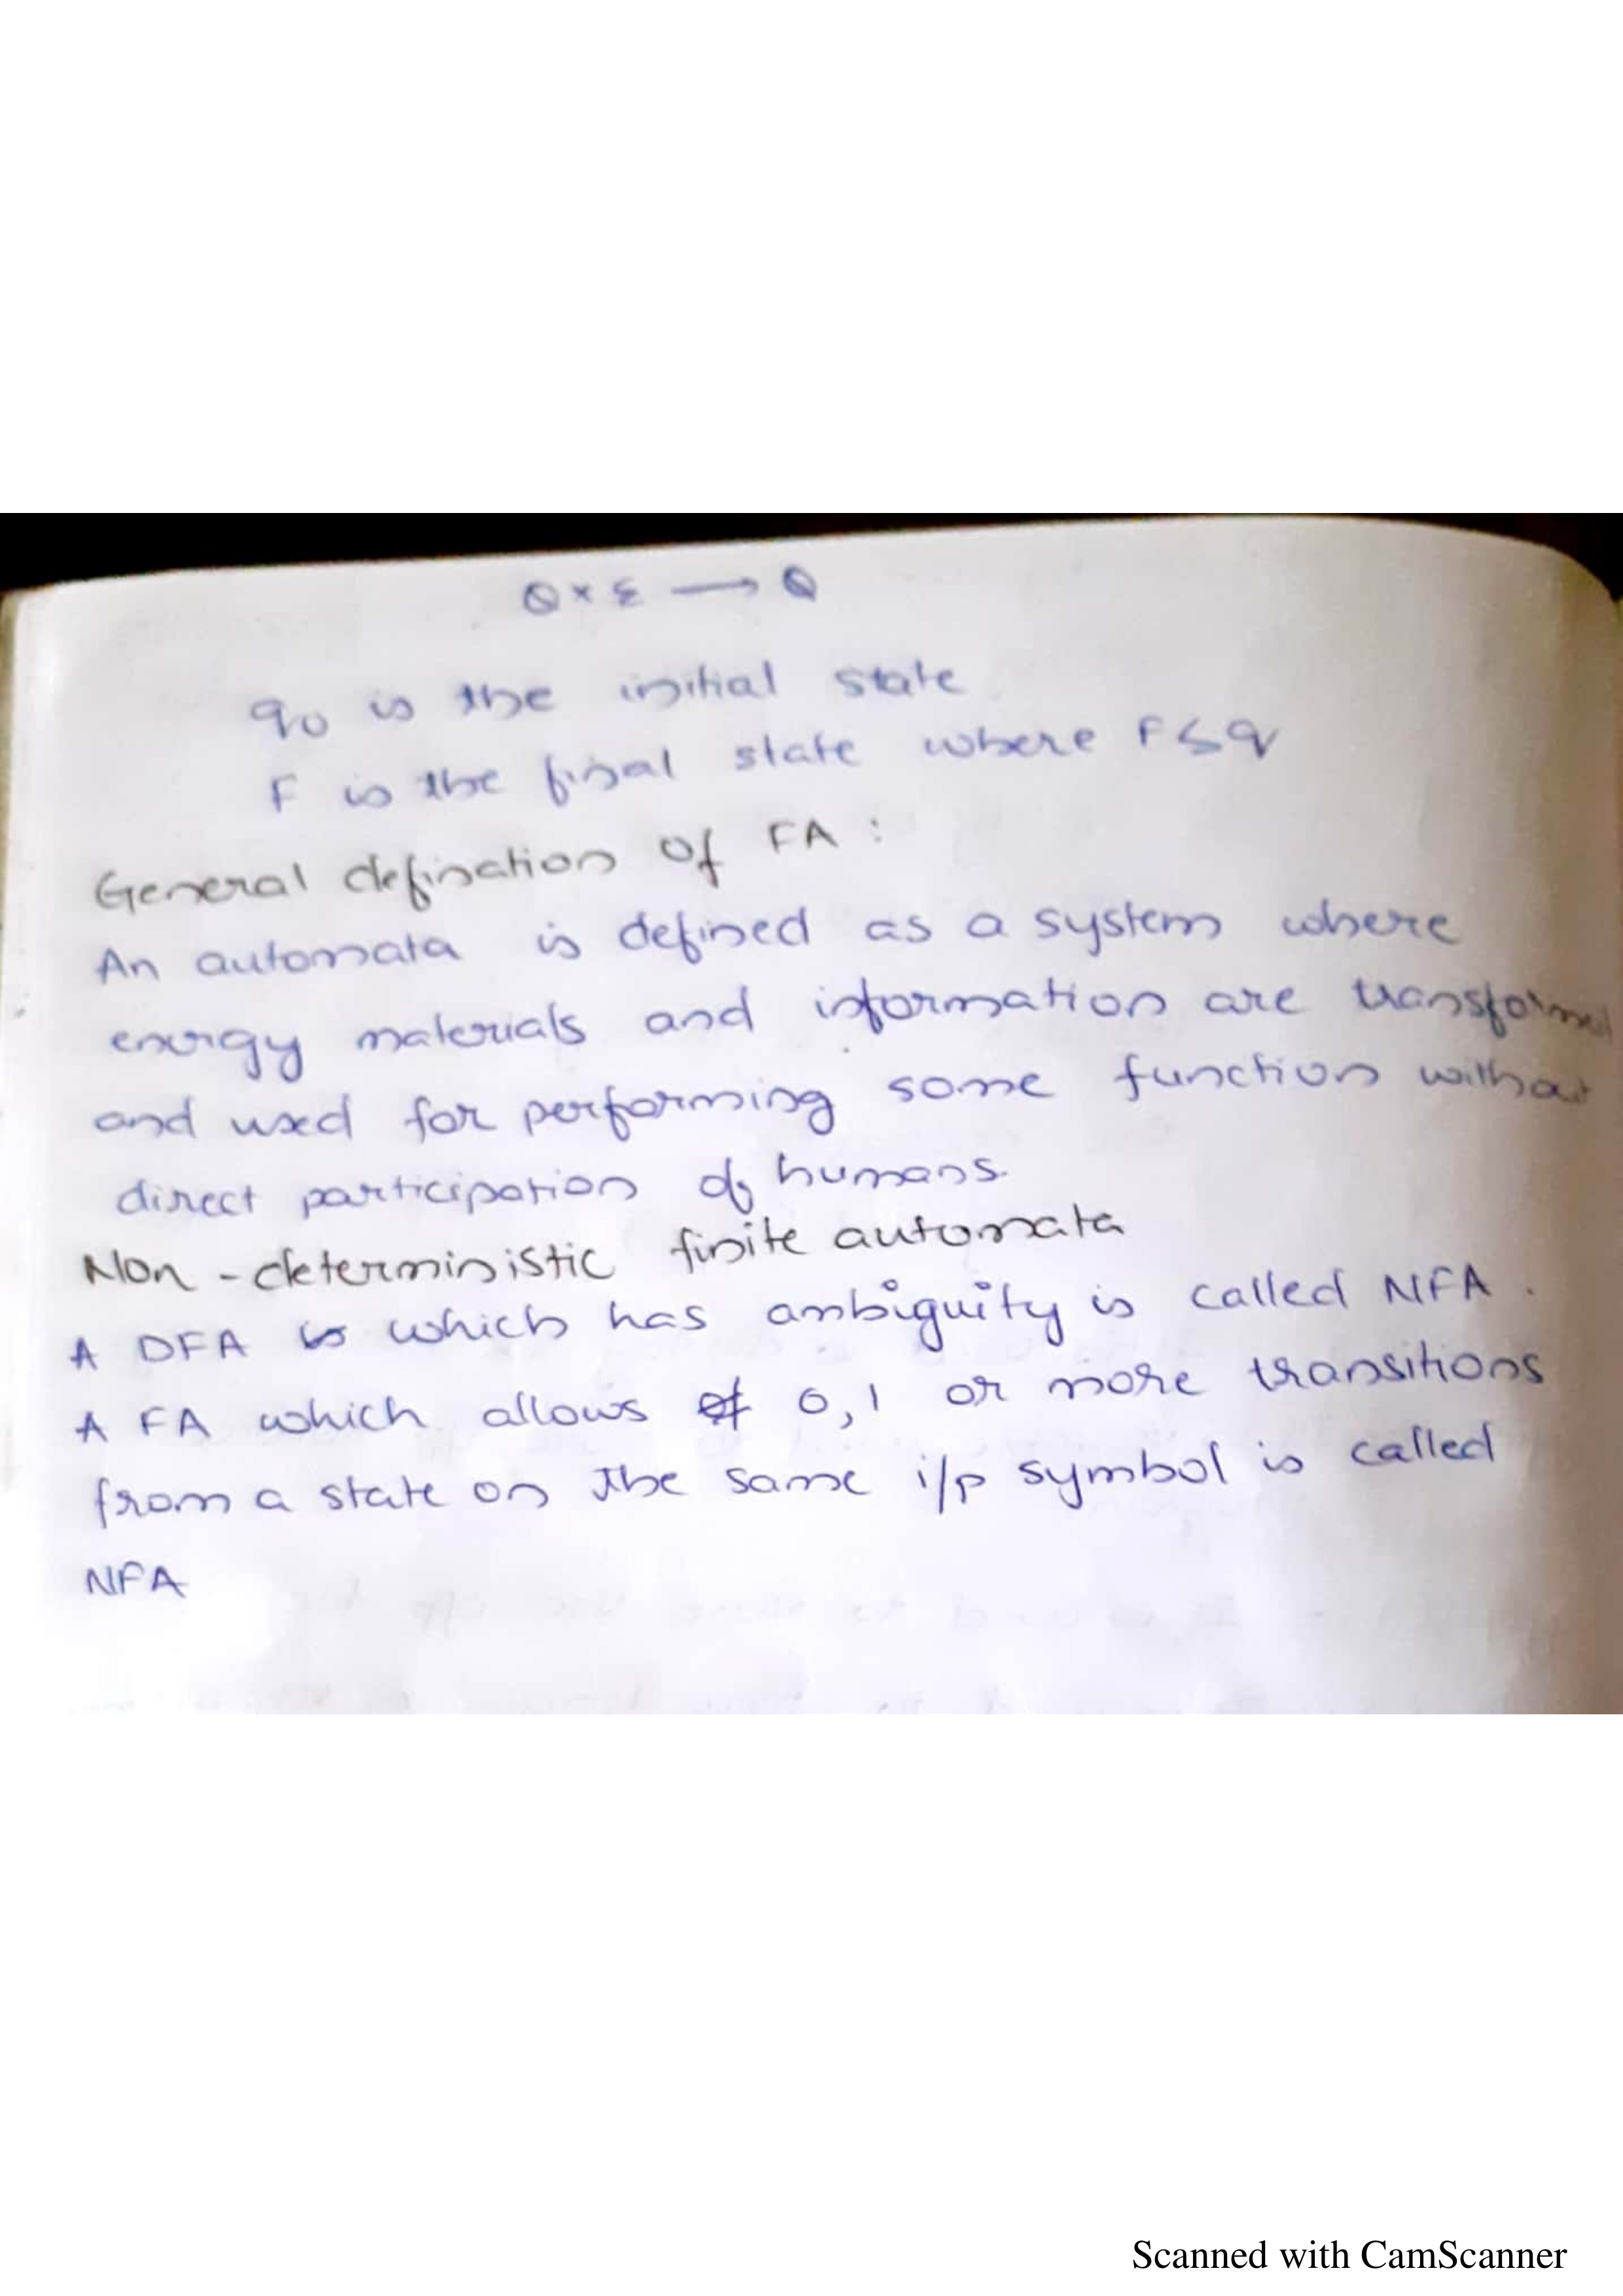 Q × Σ → Q
q0 is the initial state
F is the final state where F ≤ q
General defination of FA :
An automata is defined as a system where
energy materials and information are transformed
and used for performing some function without
direct participation of humans.
Non - deterministic finite automata
A DFA is which has ambiguity is called NFA .
A FA which allows of 0,1 or more transitions
from a state on the same i/p symbol is called
NFA
Scanned with CamScanner